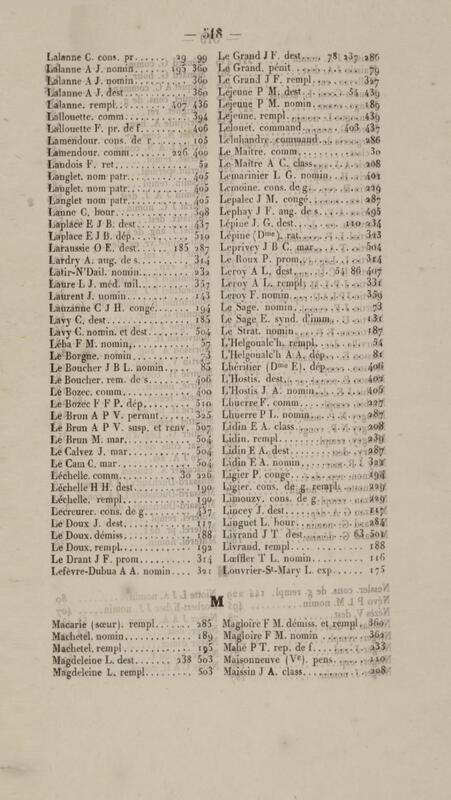 — 518 —
Lalanne C. cons. pr...... 29 99
Lalanne A J. nomin.... 195 360
Lalanne A J. dest........... 360
Lalanne. rempl......... 407 436
Lallouette. comm............ 394
Lallouette F. pr. de f......... 406
Lamendour. cons. de r....... 105
Lamendour. comm..... 226 400
Landois F. ret.............. 52
Langlet. nom patr........... 405
Langlet. nom patr........... 405
Langlet. nom patr........... 405
Lanne C. bour.............. 398
Laplace E J B. dest.......... 437
Laplace E J B. dép.......... 510
Laraussie O E. dest..... 185 287
Lardry A. aug. de s......... 314
Latir-N'Dail. nomin......... 232
Laure L J. méd. mil......... 357
Laurent J. nomin........... 143
Lauzanne C J H. congé...... 194
Lavy C. dest............... 185
Lavy C. nomin. et dest....... 504
Léba F M. nomin............ 57
Le Borgne. nomin........... 73
Le Boucher J B L. nomin..... 85
Le Boucher. rem. de s........ 406
Le Bozec. comm............ 400
Le Bozec F F P. dép......... 510
Le Brun A P V. permut...... 325
Le Brun A P V. susp. et renv. 507
Le Brun M. mar............ 504
Le Calvez J. mar........... 504
Le Cam C. mar............. 504
Léchelle. comm.......... 30 226
Léchelle H H. dest.......... 190
Léchelle. rempl............. 190
Lecreurer. cons. de g........ 437
Le Doux J. dest............ 117
Le Doux. démiss............ 188
Le Doux. rempl............. 192
Le Drant J F. prom......... 314
Lefèvre-Dubua A A. nomin.... 321
Le Grand J F. dest... 78 237 286
Le Grand. pénit............ 79
Le Grand J F. rempl......... 327
Lejeune P M. dest....... 54 439
Lejeune P M. nomin......... 189
Lejeune. rempl............. 439
Lelouet. command...... 403 437
Leluhandre. command....... 286
Le Maître. comm............ 30
Le Maître A C. class......... 208
Lemarinier L G. nomin....... 401
Lemoine. cons. de g......... 229
Lepalec J M. congé.......... 287
Lephay J F. aug. de s........ 495
Lépine J. G. dest....... 110 234
Lépine (D<sup>me</sup>). rat............ 323
Leprivey J B C. mar......... 504
Le Roux P. prom............ 314
Leroy A L. dest...... 54 86 407
Leroy A L. rempl........... 331
Leroy F. nomin............. 359
Le Sage. nomin............. 73
Le Sage E. synd. d'imm...... 131
Le Strat. nomin............ 187
L'Helgoualc'h. rempl......... 54
L'Helgoualc'h A A. dép....... 81
Lhéritier (D<sup>me</sup> E). dép........ 406
L'Hostis. dest.............. 402
L'Hostis J A. nomin......... 406
Lhuerre F. comm........... 227
Lhuerre P L. nomin......... 287
Lidin E A. class............ 208
Lidin. rempl............... 239
Lidin E A. dest............ 287
Lidin E A. nomin........... 322
Ligier P. congé............ 194
Ligier. cons. de g. rempl..... 229
Limouzy. cons. de g......... 229
Lincey J. dest.............. 117
Linguet L. bour............ 284
Livrand J T dest....... 63 501
Livrand. rempl............. 188
Lœffler T L. nomin......... 116
Louvrier-S<sup>t</sup>-Mary L. exp...... 175
M
Macarie (sœur). rempl....... 285
Machetel. nomin............ 189
Machetel. rempl............ 195
Magdeleine L. dest...... 238 503
Magdeleine L. rempl......... 503
Magloire F M. démiss. et rempl. 360
Magloire F M. nomin........ 362
Mahé P T. rep. de f......... 233
Maisonneuve (V<sup>e</sup>). pens...... 110
Maissin J A. class.......... 208